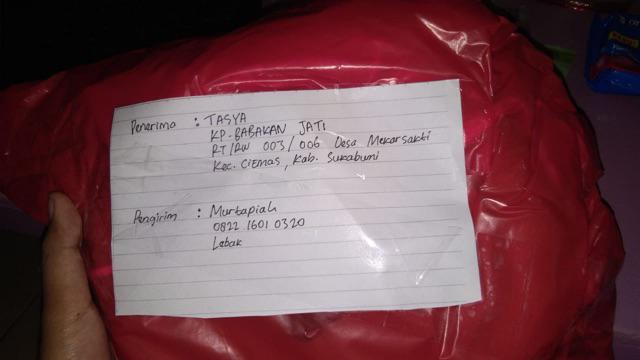 Penerima : TASYA
KP. BABAKAN JATI
RT/RW 003/006 Desa Mekarsakti
Kec. CIEMAS, Kab. Sukabumi
Pengirim : Murtapiah
0822 1601 0320
Lebak